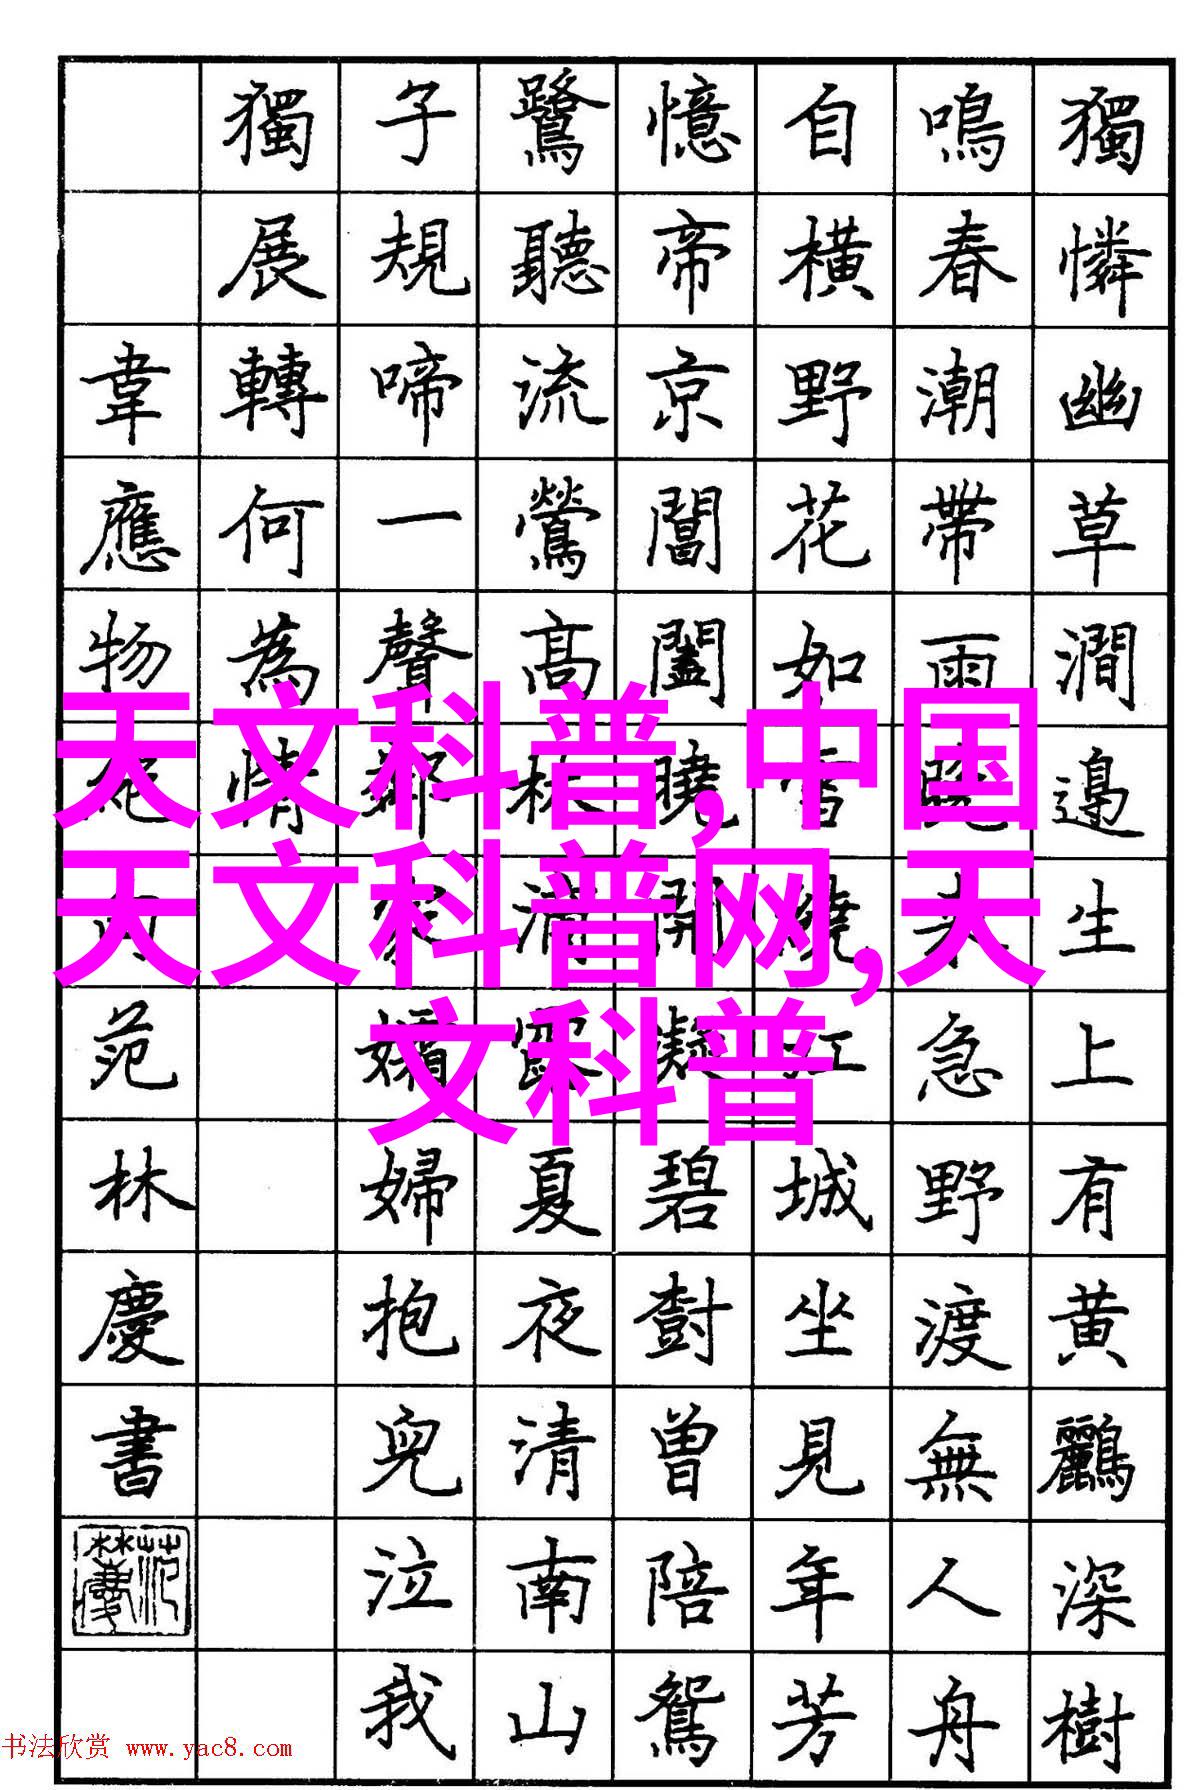 獨憐幽草澗邉生上有黄鸝深樹
鳴春潮帶雨晚来急野渡無人舟
自横野花如雪繞江城坐見年芳
憶帝京閶闔曉開凝碧樹曾陪鴛
鷺聽流鶯高林滴露夏夜清南山
子規啼一聲鄰家孀婦抱兒泣我
獨展轉何為情
韋應物
范林慶書
天文科普,中国
天文科普网,天
文科普
书法欣赏 www.yac8.com